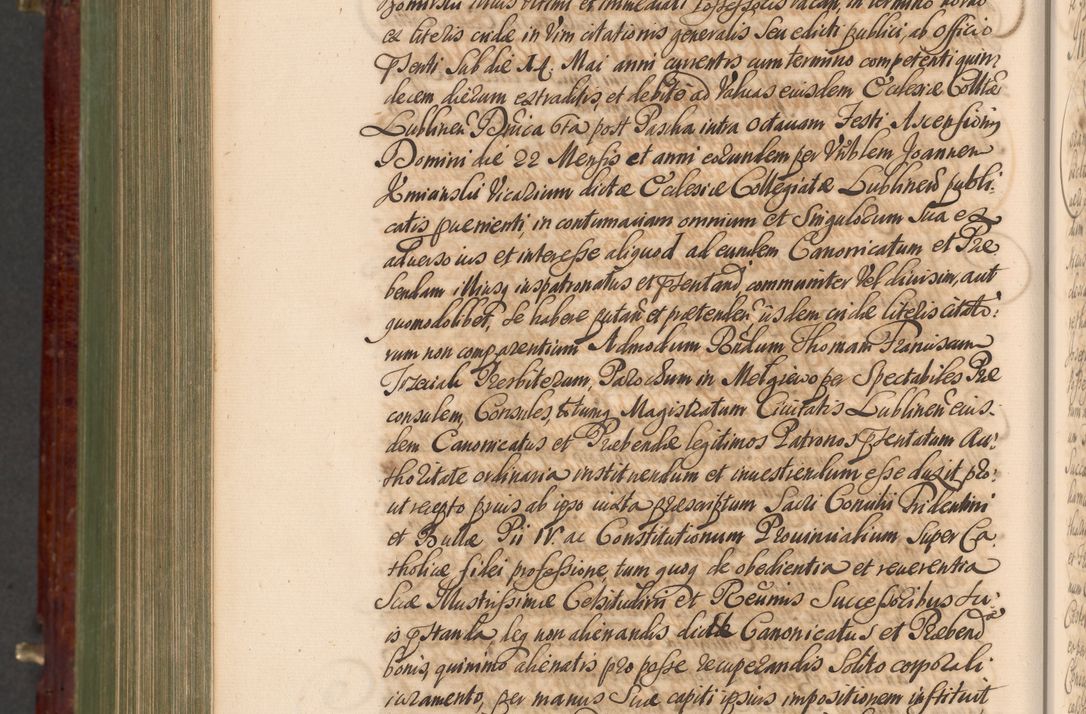 ex literis eiusdem in vim citationis generalis Seu edicti publici, ab Officio
pſenti Sub die 14. Mai anni currentis cum termino competenti quin-
decem dierum extraditis, et debite ad Valuas eiusdem Ecclesiæ Colltæ
Lublinen̄ Dn̄ica 6ta post Pascha intra Octauam Festi Ascensionis
Domini die 22 Mensis et anni eorundem per Vn̄blem Joannem
Kmianski Vicarium dictæ Ecclesiæ Collegiatæ Lublinen̄ publi-
catis prementi, in contumaciam omnium et Singulorum Sua ex
aduerso ius et interesse aliquod ad eundem Canonicatum et Præ
bendam illiusq iuspatronatus et pſentand communiter Vel diuisim, aut
quomodolibet, Se habere putan̄ et prætenden̄ iisdem eiusdē literis citato-
rum non comparentium Admodum Rn̄dum Thomam Franciscum
Trzeciak Presbiterum, Parochum in Mełgiew per Spectabiles Præ
consulem, Consules, totumq Magistratum Ciuitatis Lublinen̄ eius-
dem Canonicatus et Præbendæ legitimos Patronos pſentatum Au-
thoritate ordinaria instituendum et inuestiendum esse duxit pro-
ut recepto prius ab ipso iuxta præscriptum Sacri Concilii Tridentini
et Bullæ Pii IV. ac Constitutionum Prouincialium Super Ca
tholicæ fidei professione, tum quoq de obedientia et reuerentia
Suæ Illustrissimæ Celsitudini et Reūmis Successoribus Su-
is pſtanda, deq non alienandis dictæ Canonicatus et Præbendæ
bonis, quinimo alienatis pro posse recuperandis Solito corporali
iuramento, per manus Suæ capiti ipsius impositionem instituit